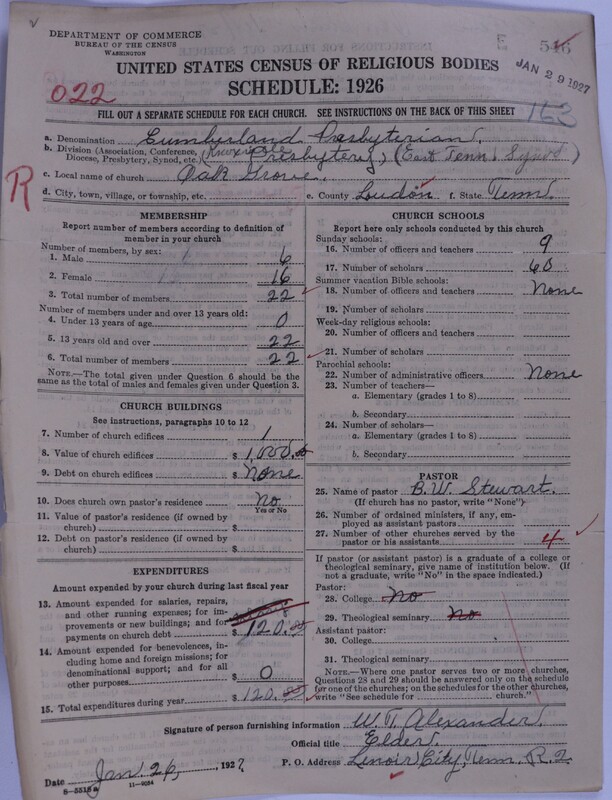 DEPARTMENT OF COMMERCE
BUREAU OF THE CENSUS
WASHINGTON
E 546
JAN 29 1927
UNITED STATES CENSUS OF RELIGIOUS BODIES
SCHEDULE: 1926
022
163
FILL OUT A SEPARATE SCHEDULE FOR EACH CHURCH. SEE INSTRUCTIONS ON THE BACK OF THIS SHEET
R
a. Denomination Cumberland Presbyterian
b. Division (Association, Conference, Diocese, Presbytery, Synod, etc.) (Knoxville Presbytery) (East Tenn. Synod)
c. Local name of church Oak Grove
d. City, town, village, or township, etc. e. County Loudon f. State Tenn.
MEMBERSHIP
Report number of members according to definition of
member in your church
Number of members, by sex:
1. Male 6
2. Female 16
3. Total number of members 22
Number of members under and over 13 years old:
4. Under 13 years of age 0
5. 13 years old and over 22
6. Total number of members 22
NOTE.—The total given under Question 6 should be
same as the total of males and females given under Question 3.
CHURCH BUILDINGS
See instructions, paragraphs 10 to 12
7. Number of church edifices 1
8. Value of church edifices $ 1,000.00
9. Debt on church edifices $ None
10. Does church own pastor's residence No
Yes or No
11. Value of pastor's residence (if owned by
church) $
12. Debt on pastor's residence (if owned by
church) $
EXPENDITURES
Amount expended by your church during last fiscal year
13. Amount expended for salaries, repairs,
and other running expenses; for im-
provements or new buildings; and for
payments on church debt $ 120.
14. Amount expended for benevolences, in-
cluding home and foreign missions; for
denominational support; and for all
other purposes $ 0
15. Total expenditures during year $ 120.
CHURCH SCHOOLS
Report here only schools conducted by this church
Sunday schools:
16. Number of officers and teachers 9
17. Number of scholars 60
Summer vacation Bible schools:
18. Number of officers and teachers None
19. Number of scholars
Week-day religious schools:
20. Number of officers and teachers
21. Number of scholars
Parochial schools:
22. Number of administrative officers None
23. Number of teachers—
a. Elementary (grades 1 to 8)
b. Secondary
24. Number of scholars—
a. Elementary (grades 1 to 8)
b. Secondary
PASTOR
25. Name of pastor B. W. Stewart.
(If church has no pastor, write "None")
26. Number of ordained ministers, if any, em-
ployed as assistant pastors
27. Number of other churches served by the
pastor or his assistants 4
If pastor (or assistant pastor) is a graduate of a college or
theological seminary, give name of institution below. (If
not a graduate, write "No" in the space indicated.)
Pastor:
28. College No
29. Theological seminary No
Assistant pastor:
30. College
31. Theological seminary
NOTE.—Where one pastor serves two or more churches,
Questions 28 and 29 should be answered only on the schedule
for one of the churches; on the schedules for the other churches,
write "See schedule for church."
Signature of person furnishing information W. T. Alexander
Official title Elder
Date Jan. 26, 1927 P. O. Address Lenoir City, Tenn. R. 2
8-5515a 11-9054